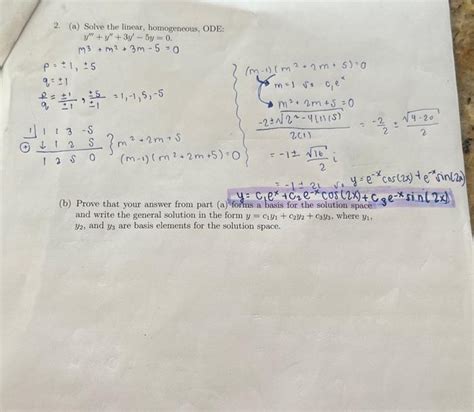 2. (a) Solve the linear, homogeneous, ODE:
y''' + y'' + 3y' − 5y = 0.
m³ + m² + 3m − 5 = 0
p = ±1, ±5
q = ±1
p/q = ±1/±1, ±5/±1 = 1, -1, 5, -5
1| 1 1 3 -5
⊕ ↓ 1 2 5
1 2 5 0
} m² + 2m + 5
(m-1)(m² + 2m + 5) = 0
(m-1)(m² + 2m + 5) = 0
m = 1 c₁eˣ
m² + 2m + 5 = 0
-2 ± √(2² - 4(1)(5)) / 2(1) = -2/2 ± √(4-20)/2
= -1 ± √16/2 i
= -1 ± 2i y = e⁻ˣcos(2x) + e⁻ˣsin(2x)
y = C₁eˣ + C₂e⁻ˣcos(2x) + C₃e⁻ˣsin(2x)
(b) Prove that your answer from part (a) forms a basis for the solution space
and write the general solution in the form y = c₁y₁ + c₂y₂ + c₃y₃, where y₁,
y₂, and y₃ are basis elements for the solution space.